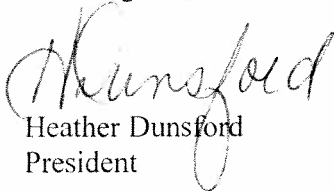 HDunsford
Heather Dunsford
President